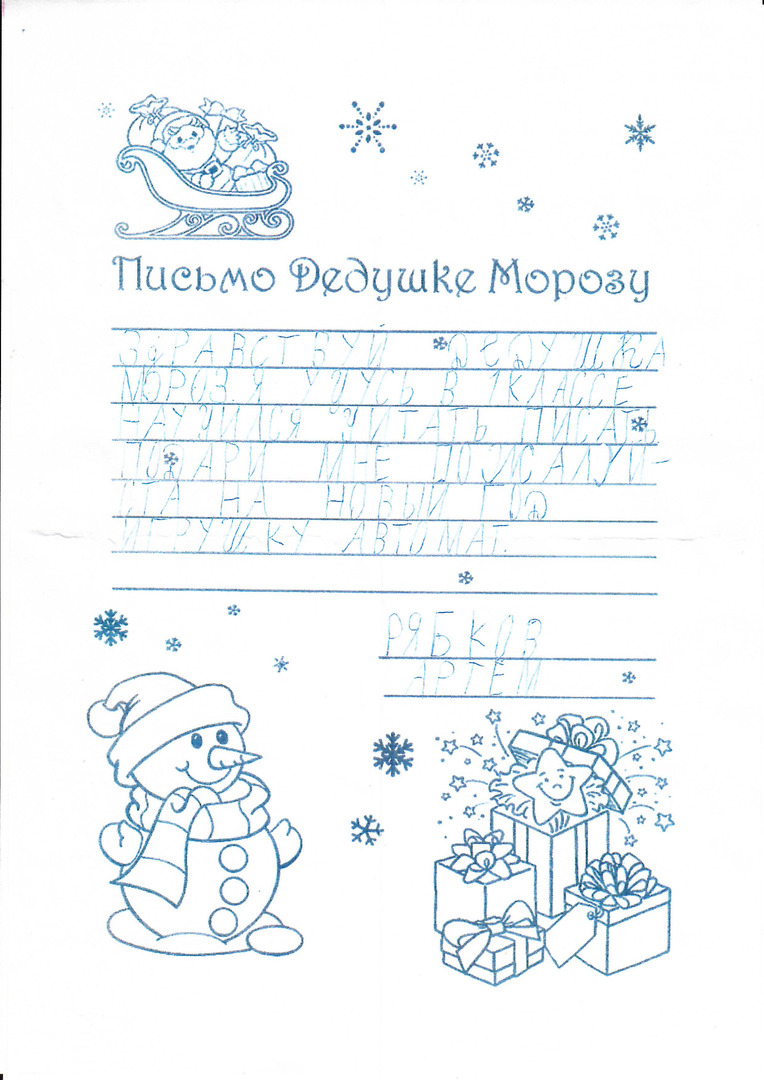 Письмо Дедушке Морозу
ЗДРАВСТВУЙ ДЕДУШКА
МОРОЗ.Я УЧУСЬ В 1КЛАССЕ
НАУЧИЛСЯ ЧИТАТЬ ПИСАТЬ
ПОДАРИ МНЕ ПОЖАЛУЙ-
СТА НА НОВЫЙ ГОД
ИГРУШКУ АВТОМАТ.
РЯБКОВ
АРТЁМ